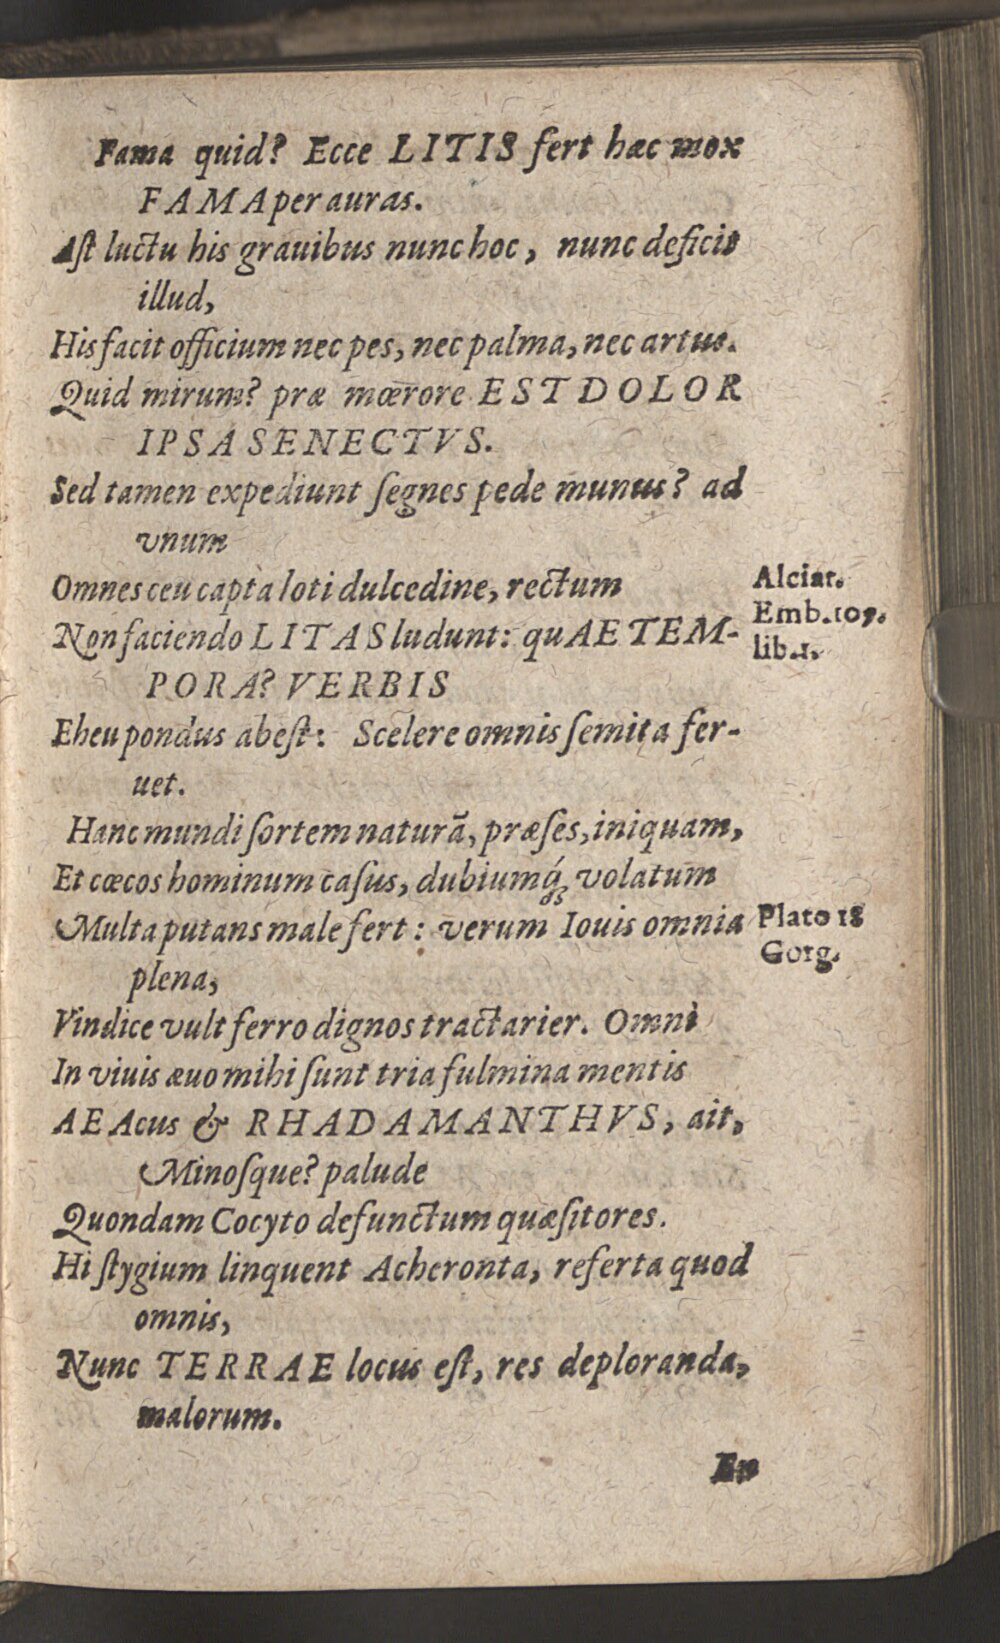 Fama quid? Ecce LITIS fert hæc mox
FAMA per auras.
Aſt luctu his grauibus nunc hoc, nunc deficit
illud,
His facit officium nec pes, nec palma, nec artus.
Quid mirum? præ mœrore EST DOLOR
IPSA SENECTVS.
Sed tamen expediunt ſegnes pede munus? ad
vnum
Omnes ceu capta loti dulcedine, rectum
Alciat.
Emb. 109.
lib. 1.
Non faciendo LITAS ludunt: quAE TEM-
PORA? VERBIS
Eheu pondus abeſt: Scelere omnis ſemita fer-
uet.
Hanc mundi ſortem naturã, præſes, iniquam,
Et cœcos hominum caſus, dubiumq́; volatum
Multa putans male fert: verum Iouis omnia
Plato 18
Gorg.
plena,
Vindice vult ferro dignos tractarier. Omni
In viuis æuo mihi ſunt tria fulmina mentis
AEAcus & RHADAMANTHVS, ait,
Minoſque? palude
Quondam Cocyto defunctum quæſitores.
Hi ſtygium linquent Acheronta, referta quod
omnis,
Nunc TERRAE locus eſt, res deploranda,
malorum.
En